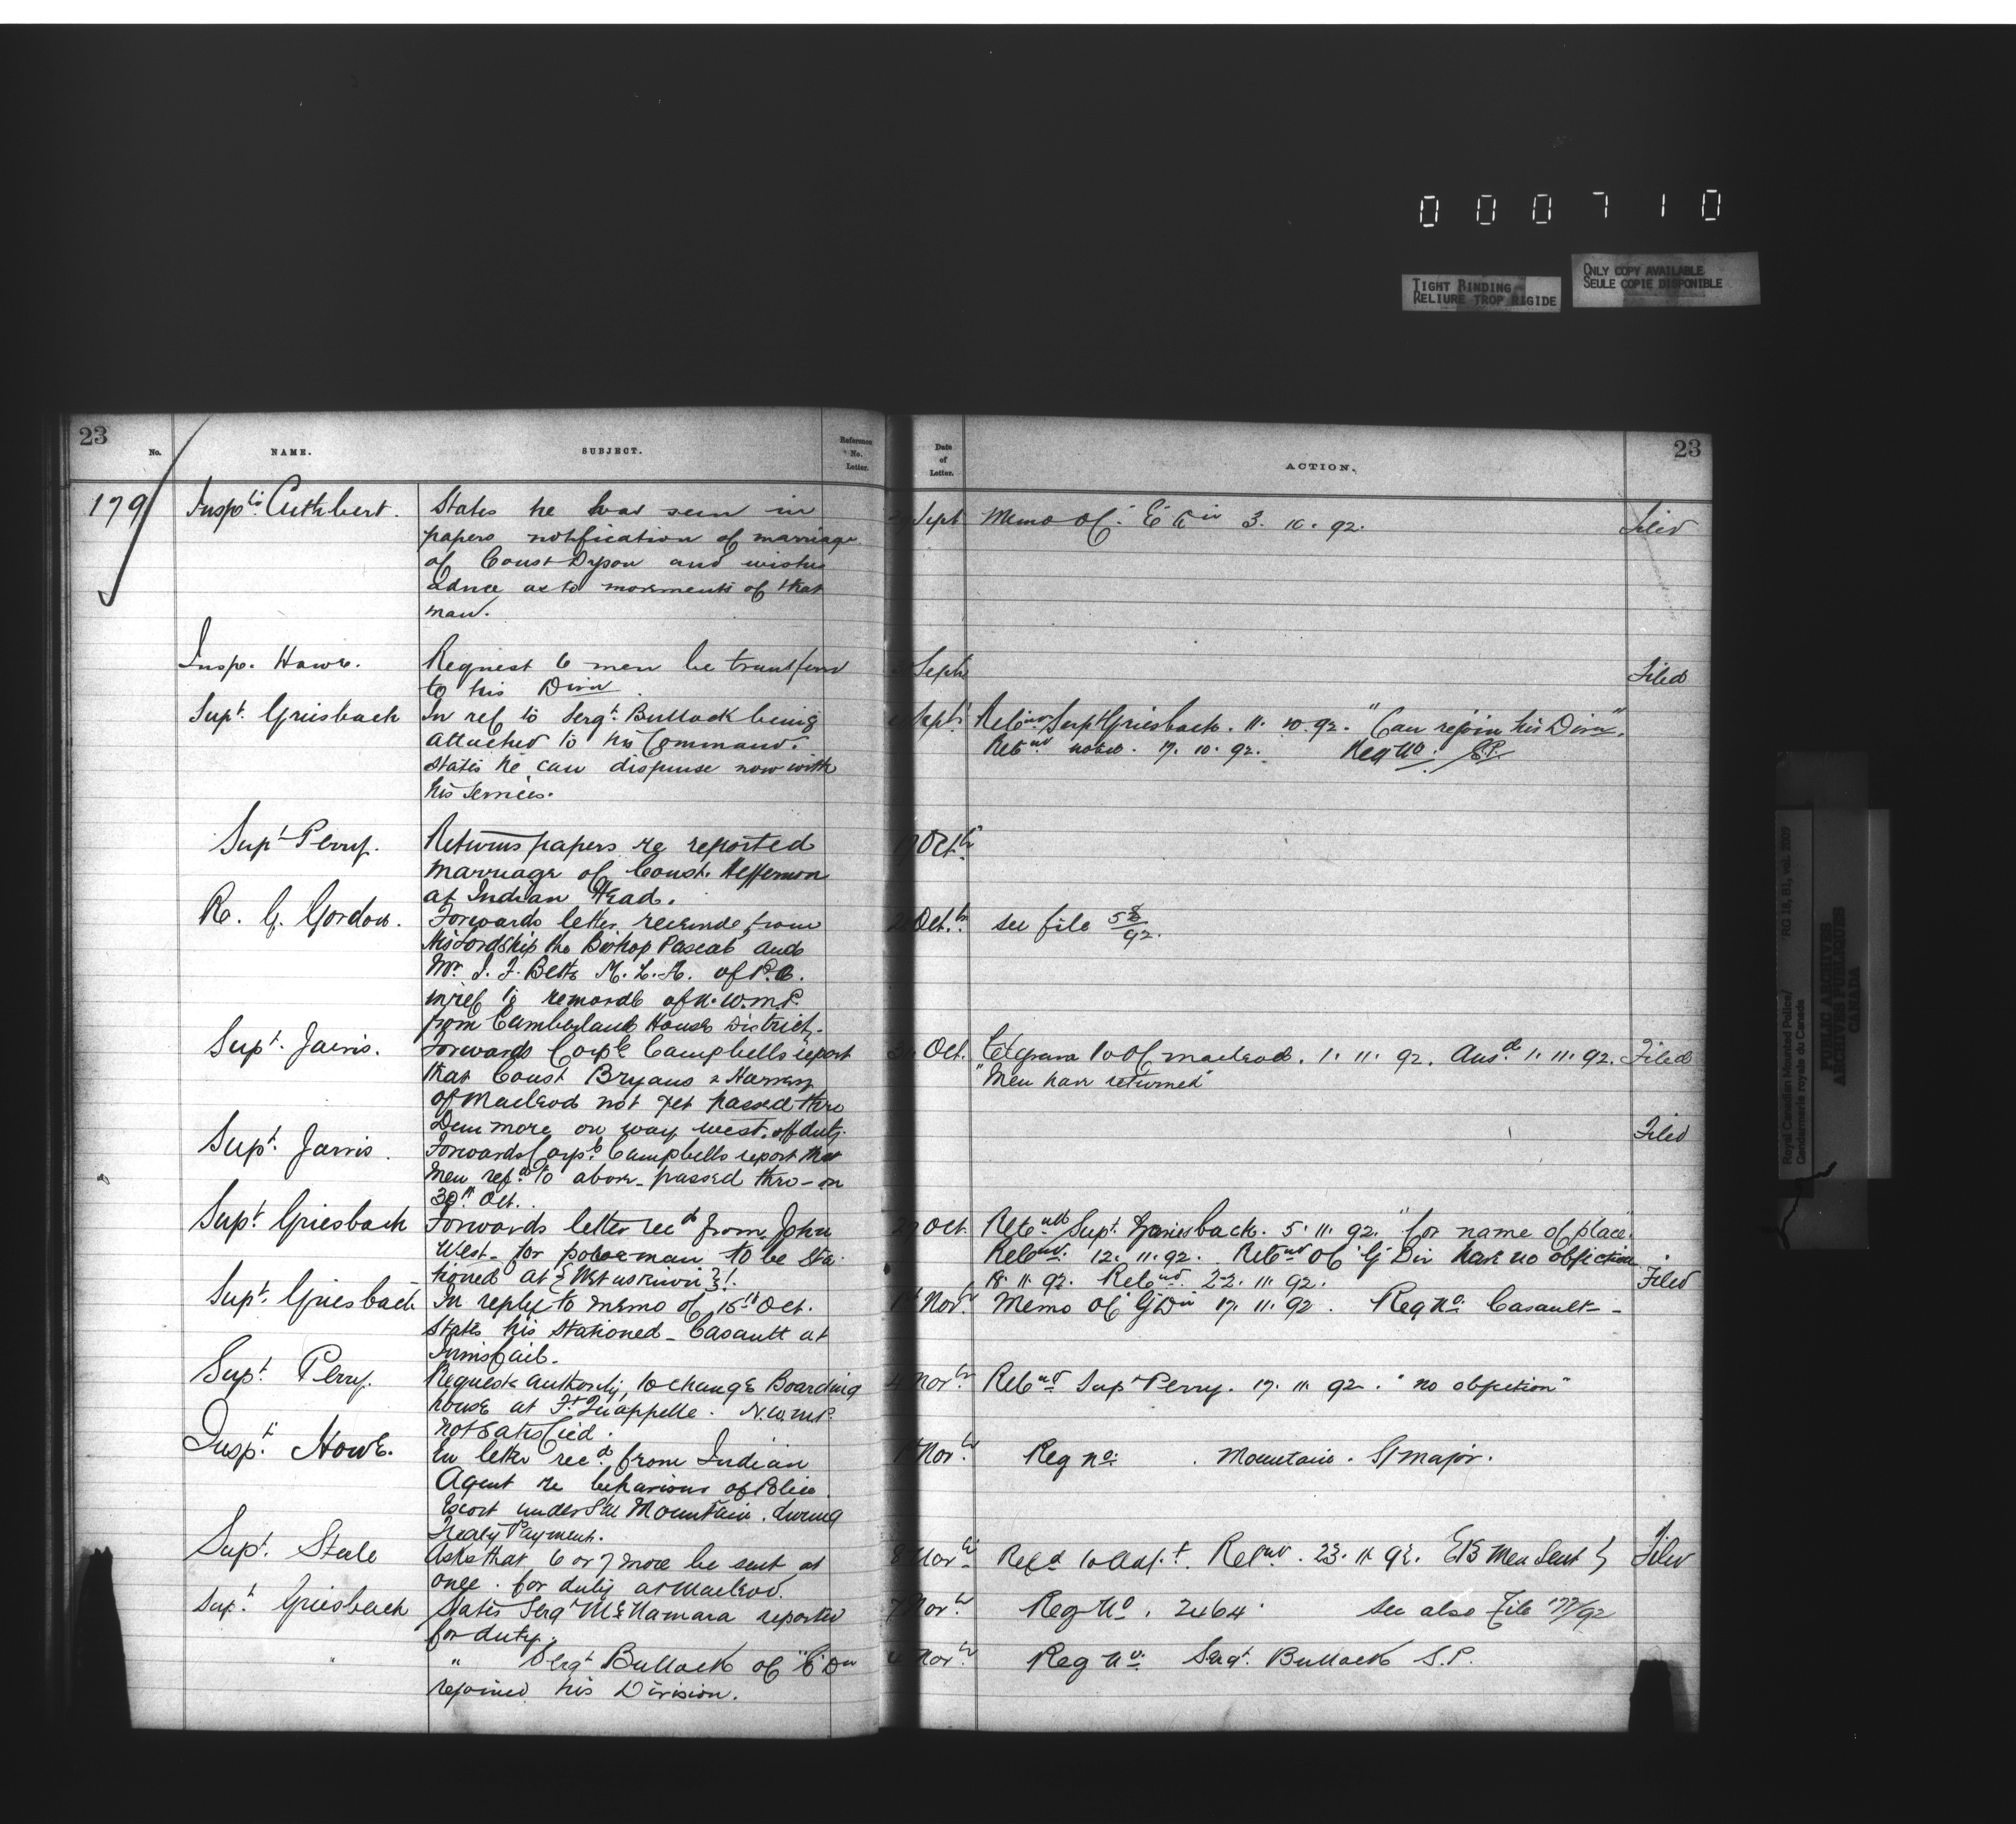 000710
TIGHT BINDING
RELIURE TROP RIGIDE
ONLY COPY AVAILABLE
SEULE COPIE DISPONIBLE
23
No.
NAME.
SUBJECT.
Reference No. Letter.
Date of Letter.
ACTION.
23
179
Inspr. Cuthbert.
States he has seen in
papers notification of marriage
of Const Dyson and wishes
advice as to movements of that
man.
Sept
Memo Of. "E" Div 3. 10. 92.
Filed
Insp. Howe.
Request 6 men be transferred
to his Divn.
Sept
Filed
Supt. Griesbach
In ref to Sergt. Bullock being
attached to his Command.
States he can dispense now with
his services.
Sept.
Retd Supt Griesbach. 11. 10. 92. "Can rejoin his Divn".
Retd noted. 17. 10. 92. Reg No. S.P.
Supt Perry.
Returns papers re reported
marriage of Const. Heffernon
at Indian Head.
Octr
R. G. Gordon.
Forwards letter received from
His Lordship the Bishop Pascal and
Mr. J. F. Betts M.L.A. of P.A.
in ref to removal of N.W.M.P.
from Cumberland House District.
Octr.
see file 
Supt. Jarvis.
Forwards Corpl Campbells report
that Const Bryans & 
of Macleod not yet passed thro
Dunmore on way west, off duty.
Oct.
Telegram to Of Macleod. 1. 11. 92. Ansd. 1. 11. 92.
"Men have returned"
Filed
Supt. Jarvis.
Forwards Corpl. Campbells report that
men refd to above passed thro - on
30th Oct.
Filed
Supt. Griesbach
Forwards letter recd from John
West for policeman to be sta-
tioned at {Wetaskiwin}!
27 Oct.
Retd Supt. Griesbach. 5. 11. 92. "for name of place".
Retd. 12. 11. 92. Retd Of "G" Div have no objection
18. 11. 92. Retd. 22. 11. 92.
Filed
Supt. Griesbach
In reply to memo of 15th Oct.
States his stationed - Casault at
Innisfail.
Novr.
Memo Of "G" Div 17. 11. 92. Reg No. Casault -
Supt. Perry.
Requests authority to change Boarding
house at Ft. Qu'appelle. N.W.M.P.
not satisfied.
4 Novr.
Retd Supt Perry. 17. 11. 92. "no objection"
Inspr. Howe.
In letter recd from Indian
Agent re behaviour of Police
Escort under S/M Mountain. during
Treaty Payment.
Novr.
Reg No. . Mountain. S/Major.
Supt. Steele
Asks that 6 or 7 more be sent at
once. for duty at Macleod.
8 Novr
Refd to Adjt. Retd. 23. 11. 92. 
Men Sent
Filed
Supt. Griesbach
States Sergt McNamara reported
for duty.
7 Novr.
Reg No. 2464. See also File 177/92
"
" Sergt Bullock of "E" Dn
rejoined his Division.
4 Novr.
Reg No. Sergt. Bullock S.P.
Royal Canadian Mounted Police/
Gendarmerie royale du Canada
RG 18, B1, vol. 2099
PUBLIC ARCHIVES
ARCHIVES PUBLIQUES
CANADA